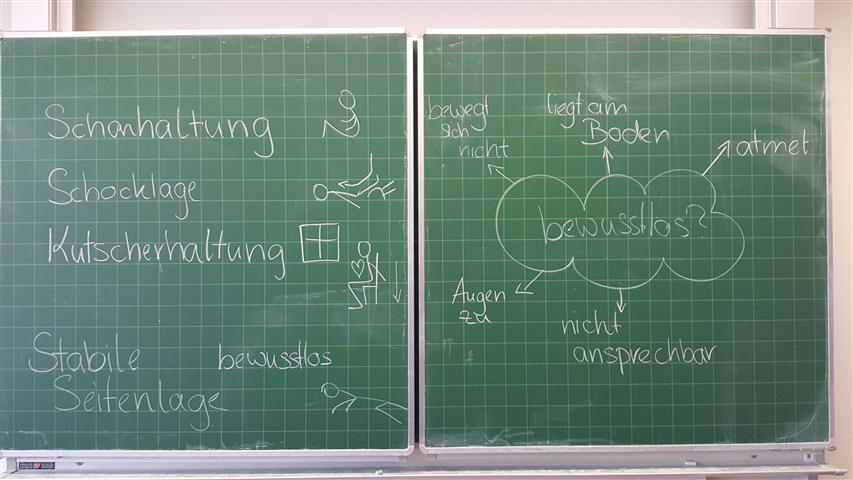 Schonhaltung
Schocklage
Kutscherhaltung
Stabile bewusstlos
Seitenlage
bewegt
sich
nicht
liegt am
Boden
atmet
bewusstlos?
Augen
zu
nicht
ansprechbar